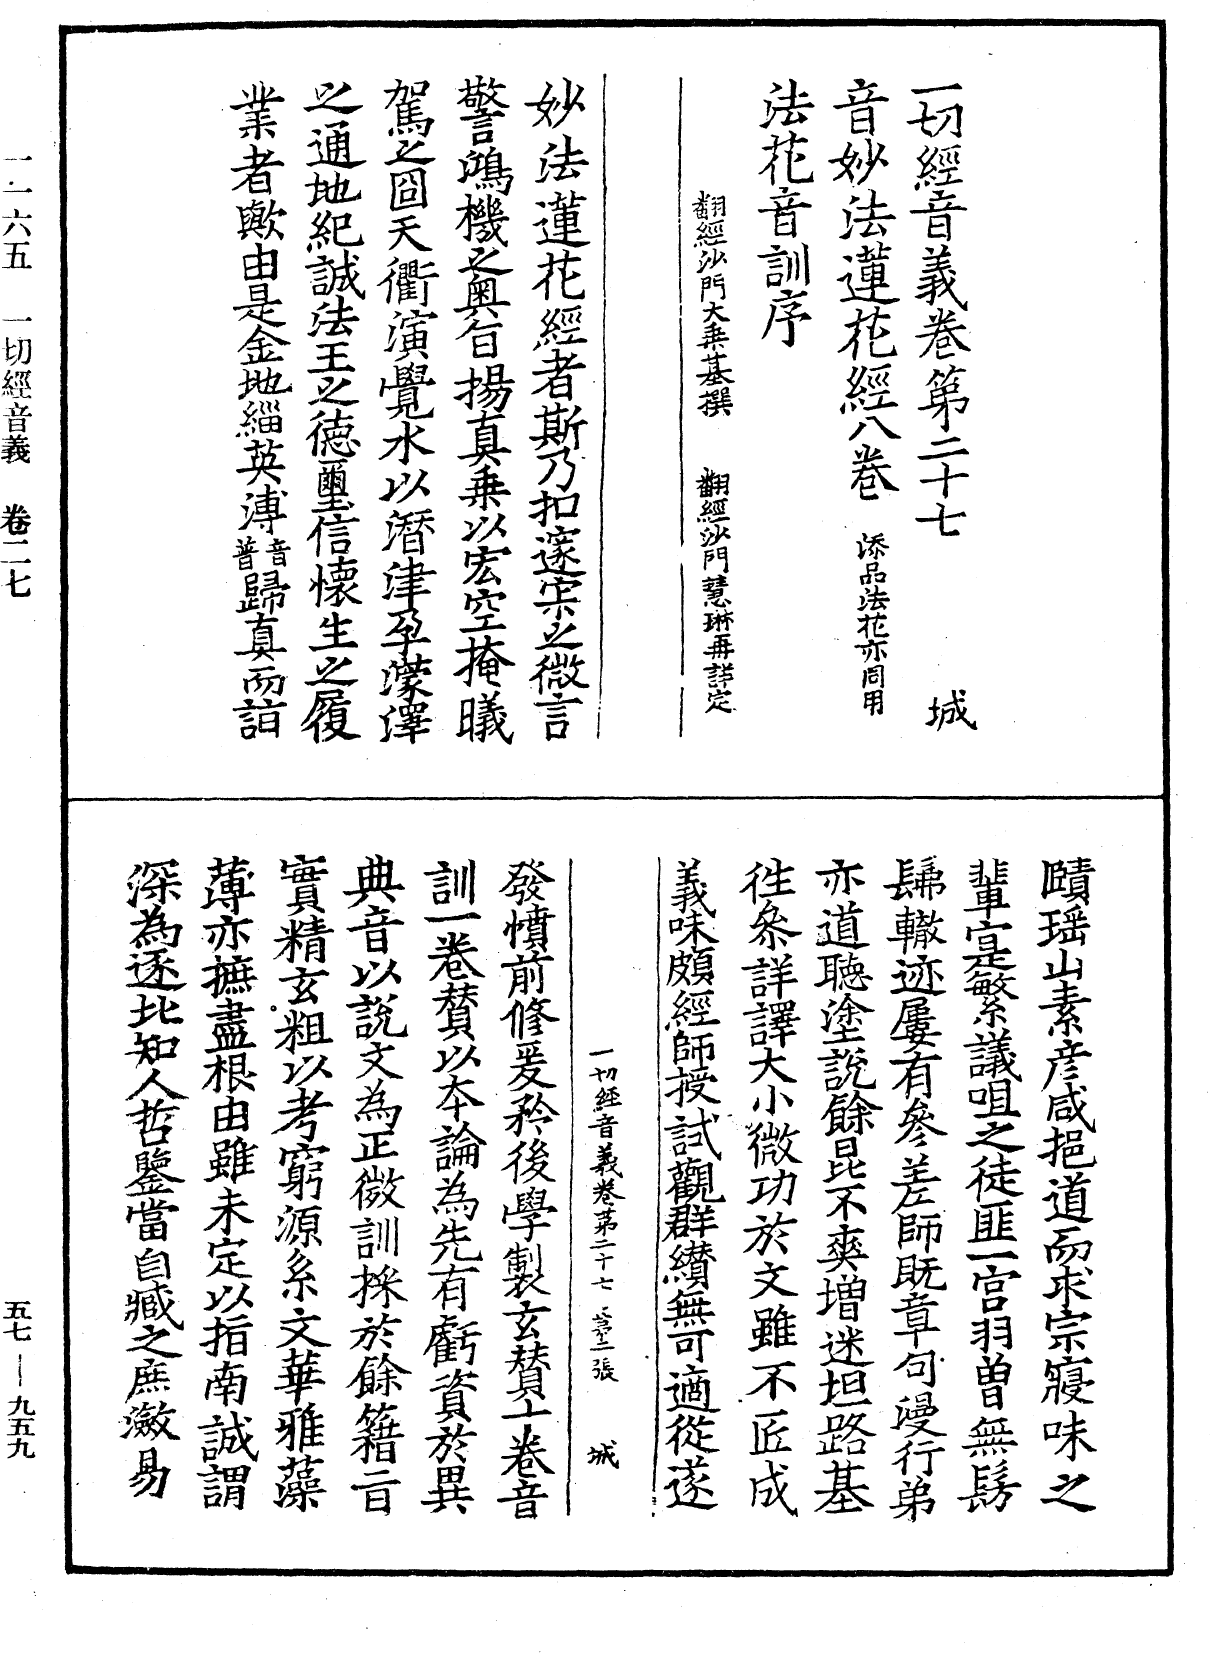 一切經音義卷第二十七　城
音妙法蓮花經八卷 添品法花亦同用
法花音訓序
翻經沙門大乗基撰　翻經沙門慧琳再詳定
妙法蓮花經者斯乃扣邃宗之微言
警鴻機之奥旨揚真乗以宏空掩曦
駕之囧天衢演覺水以潛津孕濛澤
之通地紀誠法王之德璽信懷生之履
業者歟由是金地緇英溥音普歸真而詣
賾瑶山素彦咸挹道而求宗寢味之
輩寔繁議咀之徒匪一宫羽曽無髣
髴轍迹屢有叅差師既章句漫行弟
亦道聴塗說餘昆不爽增迷坦路基
徃叅詳譯大小微功於文雖不匠成
義味頗經師授試觀群纉無可適從遂
一切經音義卷第二十七　苐二張　城
發憤前修爰矜後學製玄賛十卷音
訓一卷賛以夲論為先有虧資於異
典音以說文為正微訓採於餘籍二音
實精玄粗以考窮源系文華雅藻
薄亦摭盡根由雖未定以指南誠謂
深為逐北知人哲鑒當自臧之庶澂易
一一六五　一切經音義　卷二七
五七—九五九